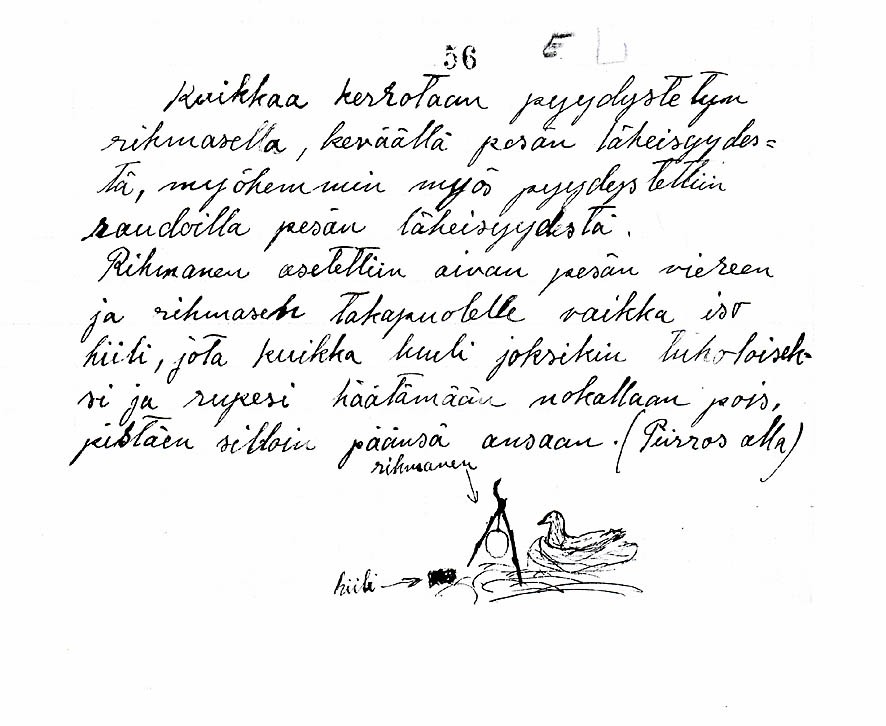 56
Kuikkaa kerrotaan pyydystetyn
rihmasella, keväällä pesän läheisyydes=
tä, myöhemmin myös pyydystettiin
raudoilla pesän läheisyydestä.
Rihmanen asetettiin aivan pesän viereen
ja rihmasen takapuolelle vaikka iso
hiili, jota kuikka luuli joksikin tuholaisek-
si ja rupesi häätämään nokallaan pois,
pistäen silloin päänsä ansaan. (Piirros alla)
rihmanen
hiili